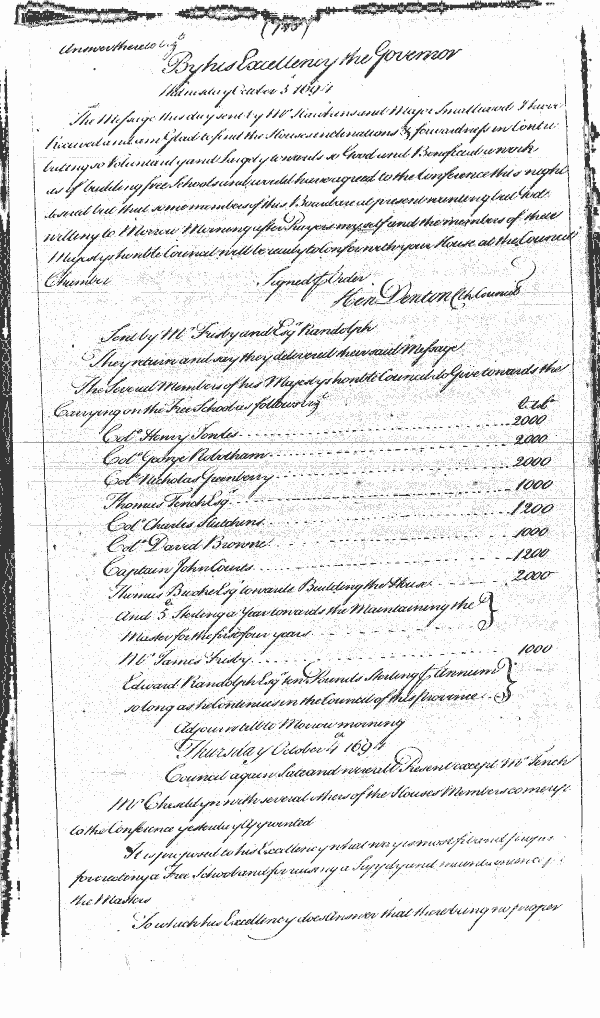 Answer thereto viz.t
By his Excellency the Governor
October 3.d 1694
The Message this day sent by Mr Hawkins and Major Smallwood I have
Received and am Glad to find the Houses inclinations & forwardness in Contri
buting so Voluntary and largely towards so Good and Beneficial a work
as of building free Schools and would have agreed to the Conference this night
desired but that some members of this Board are at present wanting but
willing to Morrow Morning after Prayers myself and the members of their
Majestys honble Council will be ready to confer with your House at the Council
Chamber Signed p Order
Hen: Denton Clk Council
Sent by Mr Frisby and Esqr Randolph
They return and say they delivered their said Message
The Several Members of his Majestys honble Council do Give towards the
Carrying on the Free School as follows viz.t lb Tob
Colo Henry Jowles 2000
Colo George Robotham 2000
Colo Nicholas Greenberry 2000
Thomas Tench Esqr 1000
Colo Charles Hutchins 1200
Colo David Browne 1000
Captain John Courts 1200
Thomas Brooke Esqr towards Building the House 2000
And 5 Sterling a Year towards the Maintaining the
Master for the first four years
Mr James Frisby 1000
Edward Randolph Esqr ten Pounds Sterling p Annum
so long as he Continues in the Council of this province
Adjourn till to Morrow morning
Thursday October 4th 1694
Council again Sate and were all Present except Mr Tench
Mr Cheseldyn with several others of the Houses Members come up
to the Conference yesterday Appointed
It is proposed to his Excellency what way is most fit and proper
for erecting a Free School and for raising a Supply and maintenance for
the Masters
To which his Excellency does Answer that there being no proper